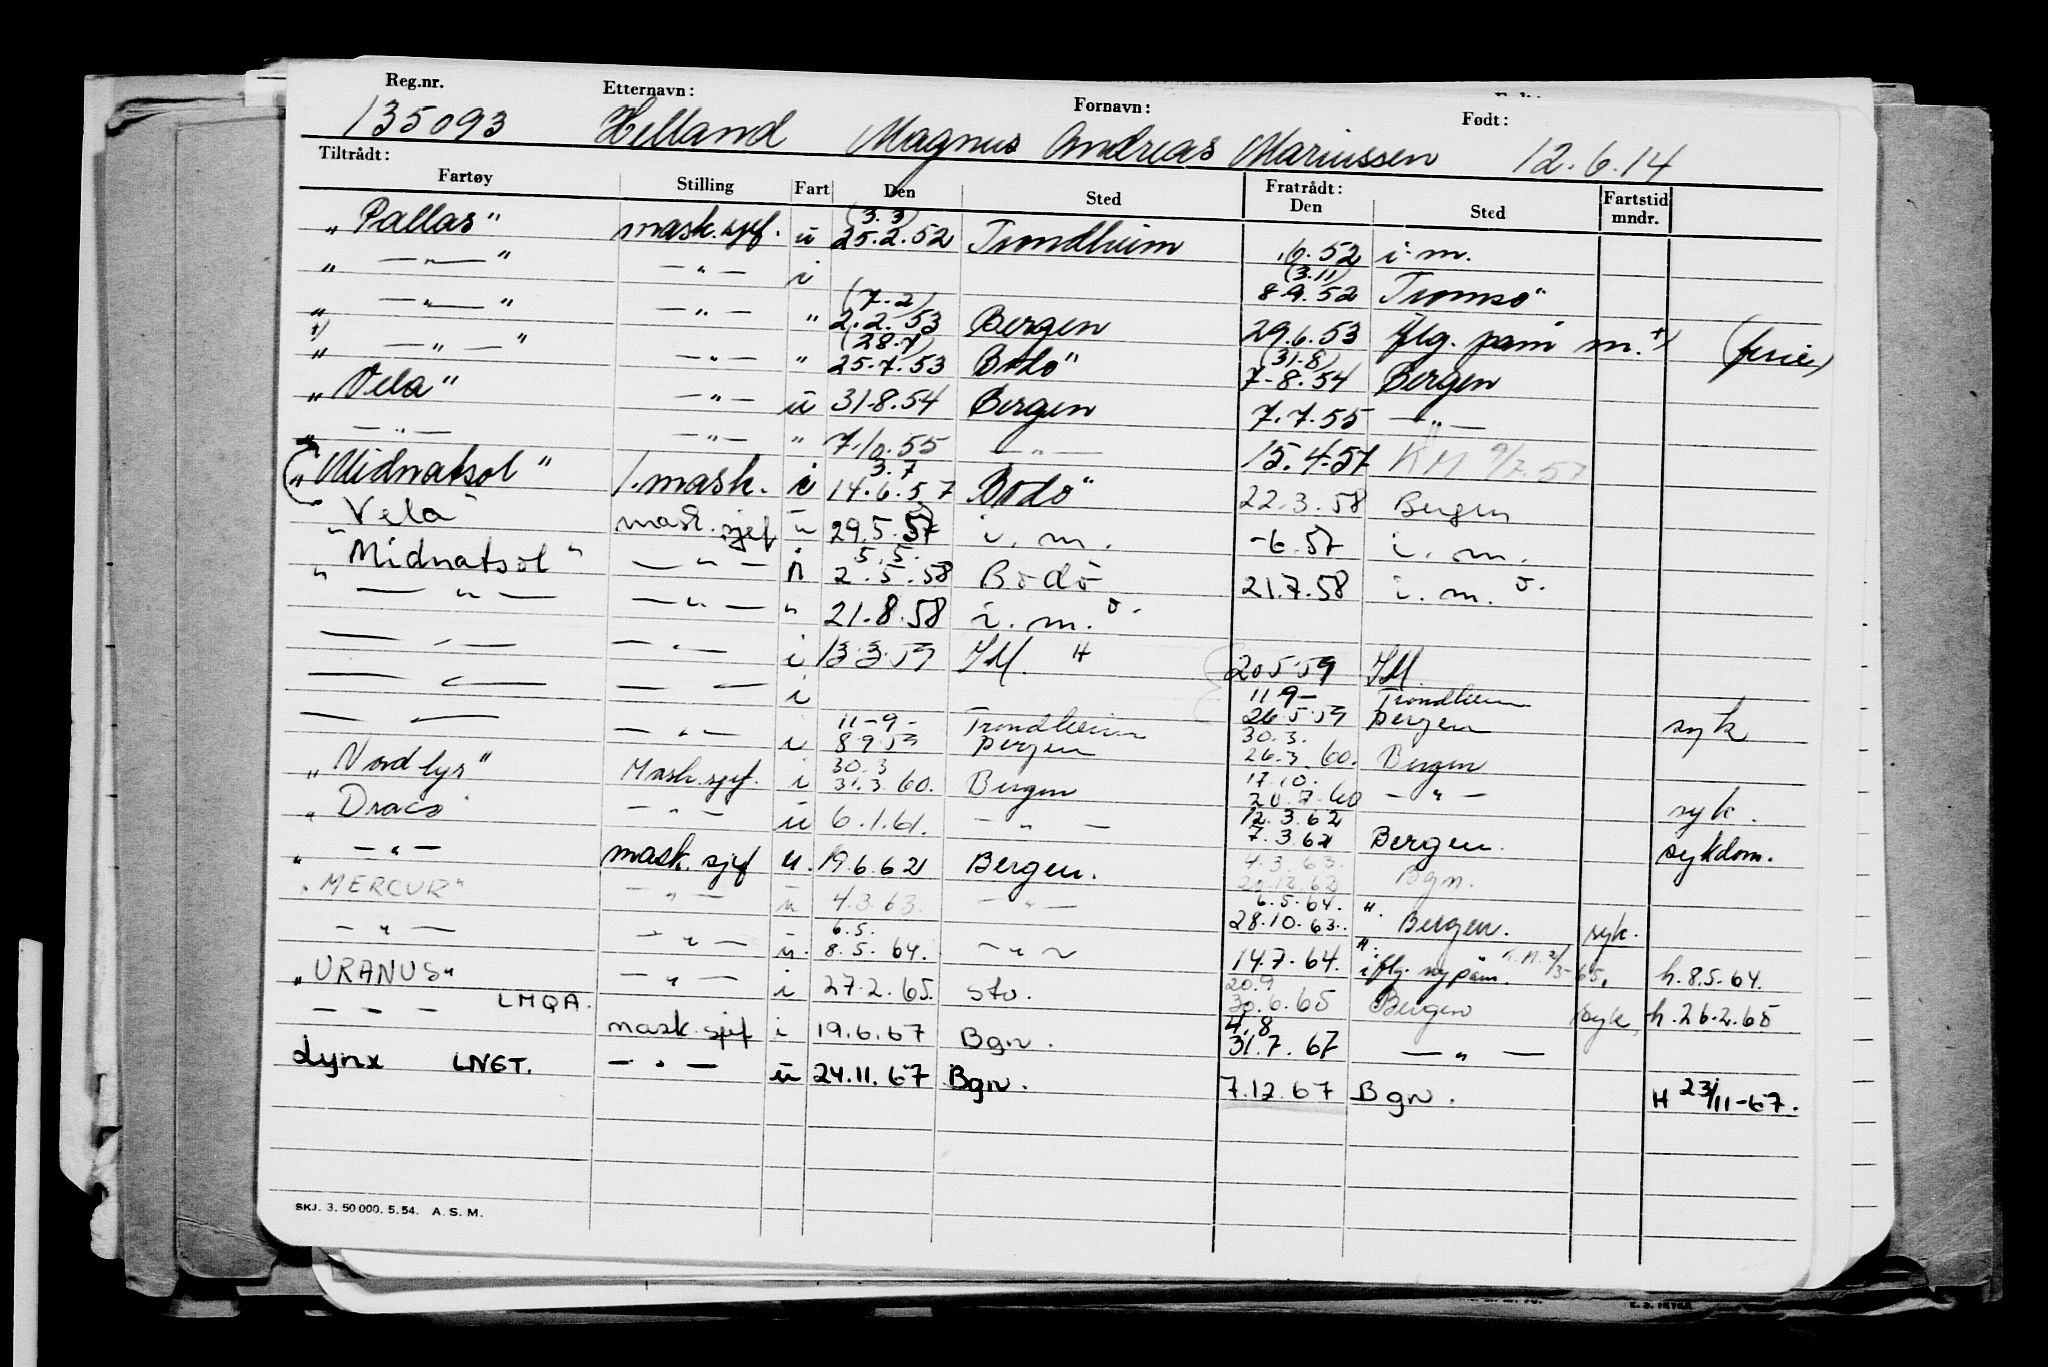 Reg.nr. Etternavn: Fornavn: Født:
135093 Helland Magnus Andreas Mariussen 12.6.14
Tiltrådt: Fratrådt:
Fartøy Stilling Fart Den Sted Den Sted Fartstid mndr.
"Pallas" mask.sjef. u (3.3) 25.2.52 Trondheim .6.52 i.m.
" —"— " —"— i (3.11) 8.9.52 Tromsø
" —"— " —"— " (7.2) 2.2.53 Bergen 29.6.53 flg. påm m. +) (ferie)
+) " —"— " —"— " (28.7) 25.7.53 Bodö (31.8) 7.8.54 Bergen
"Vela" —"— ü 31.8.54 Bergen 7.7.55 —"—
" —"— —"— " 7.10.55 —"— 15.4.57 KM 9/7.57
"Midnatsol" 1.mask. i 3.7 14.6.57 Bodö 22.3.58 Bergen
"Vela mask.sjef ü 29.5.57 i.m. -6.57 i.m.
"Midnatsol" —"— i 5.5. 2.5.58 Bodö 21.7.58 i.m. ö.
—"— —"— " 21.8.58 i.m. ö.
—"— —"— i 13.3.59 IM. H 20.5.59 IM.
—"— —"— i 11-9- 26.5.59 Trondheim Bergen syk
—"— —"— i 11-9- 8.9.59 Trondheim Bergen 30.3. 26.3.60. Bergen
"Nordlys" Mask.sjef. i 30.3 31.3.60. Bergen 17.10. 20.7.60 —"— syk.
"Draco —"— ü 6.1.61. —"— 12.3.62 7.3.62 Bergen. sykdom.
" —"— mask.sjef u. 19.6.62 Bergen. 4.3.63. Bgn.
"MERCUR" —"— ü 4.3.63. —"— 6.5.64. 28.10.63. ". Bergen. syk.
—"— —"— ü. 6.5. 8.5.64. —"— 14.7.64. ". iflg. ny påm. 2/3-65. h.8.5.64.
"URANUS" —"— i 27.2.65. Sto. 20.9 30.6.65 Bergen syk, h.26.2.65
— — — LMQA. mask.sjef i 19.6.67 Bgn. 4.8 31.7.67 —"—
Lynx LNGT. —"— ü 24.11.67 Bgn. 7.12.67 Bgn. H 23/11-67.
SKJ. 3. 50 000. 5. 54. A. S. M.